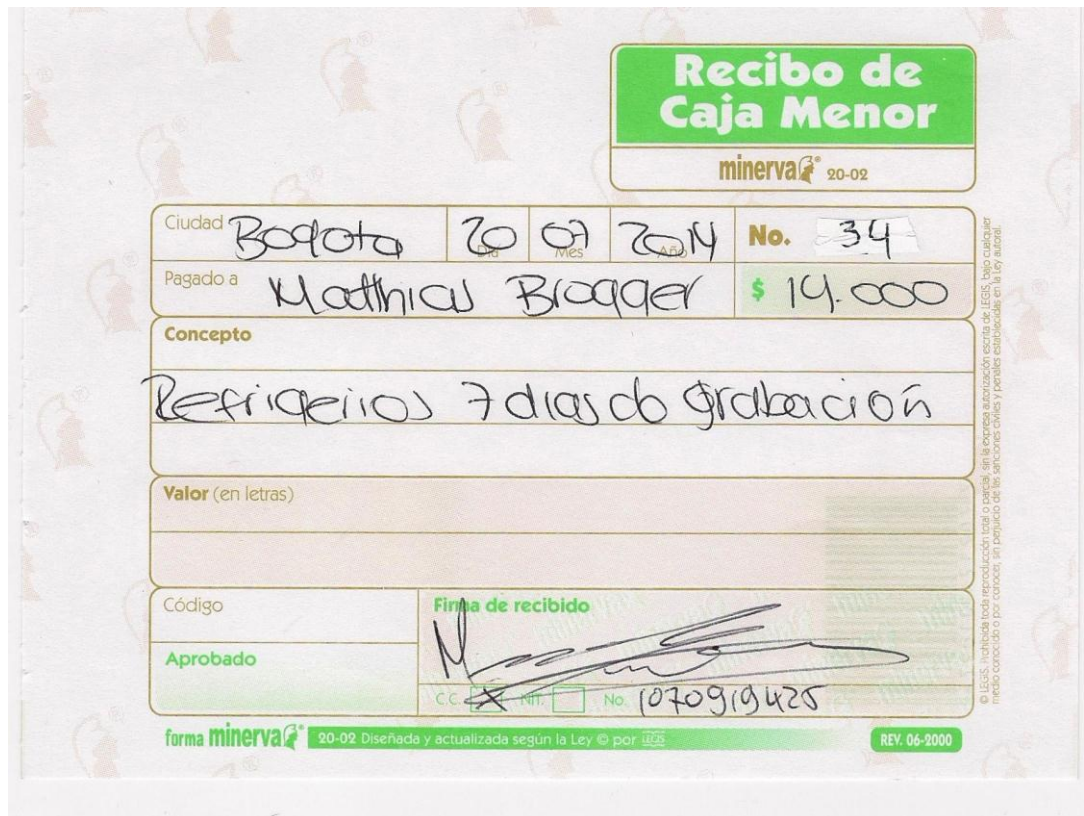 Recibo de
Caja Menor
minerva® 20-02
Ciudad Bogota 20 Día 07 Mes 2014 Año No. 34
Pagado a Matthias Brogger $ 14.000
Concepto
Refrigerios 7 dias de grabación
Valor (en letras)
Código
Firma de recibido
Aprobado
C.C. X NIT. No. 1070919425
forma minerva® 20-02 Diseñada y actualizada según la Ley © por LEGIS REV. 06-2000
© LEGIS. Prohibida toda reproducción total o parcial, sin la expresa autorización escrita de LEGIS, bajo cualquier
medio conocido o por conocer, sin perjuicio de las sanciones civiles y penales establecidas en la Ley autoral.